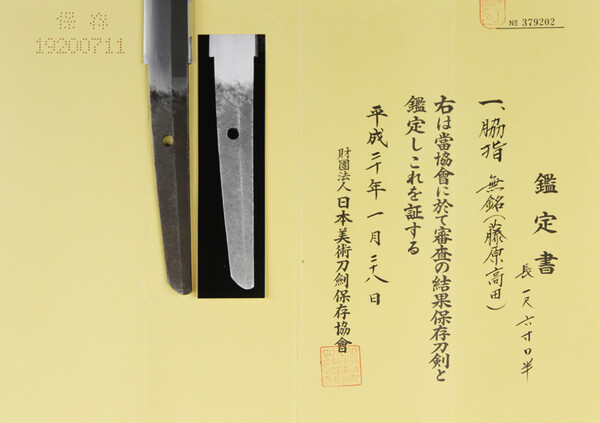 № 379202
鑑定書
一、脇指 無銘(藤原高田)
長一尺六寸口半
右は當協會に於て審査の結果保存刀剣と
鑑定しこれを証する
平成二十年一月二十八日
財團法人日本美術刀劍保存協會
保存
19200711